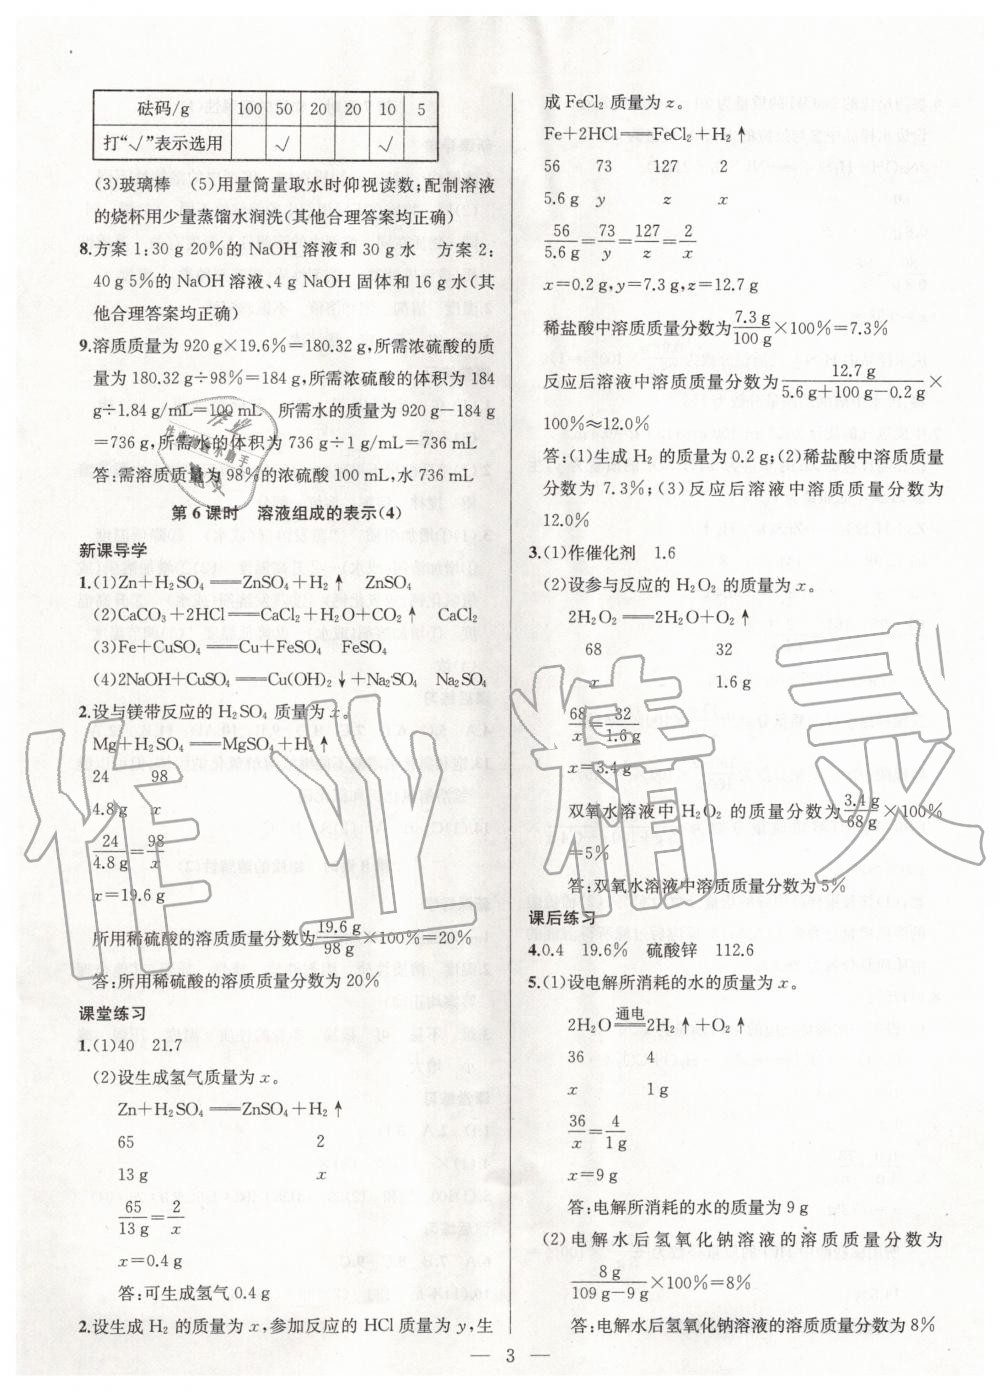 砝码/g 100 50 20 20 10 5
打“√”表示选用 √ √
(3)玻璃棒 (5)用量筒量取水时仰视读数;配制溶液
的烧杯用少量蒸馏水润洗(其他合理答案均正确)
8.方案1:30 g 20%的NaOH溶液和30 g水 方案2:
40 g 5%的NaOH溶液、4 g NaOH固体和16 g水(其
他合理答案均正确)
9.溶质质量为920 g×19.6%=180.32 g,所需浓硫酸的质
量为180.32 g÷98%=184 g,所需浓硫酸的体积为184
g÷1.84 g/mL=100 mL 所需水的质量为920 g-184 g
=736 g,所需水的体积为736 g÷1 g/mL=736 mL
答:需溶质质量为98%的浓硫酸100 mL,水736 mL
第6课时 溶液组成的表示(4)
新课导学
1.(1)Zn+H₂SO₄══ZnSO₄+H₂↑ ZnSO₄
(2)CaCO₃+2HCl══CaCl₂+H₂O+CO₂↑ CaCl₂
(3)Fe+CuSO₄══Cu+FeSO₄ FeSO₄
(4)2NaOH+CuSO₄══Cu(OH)₂↓+Na₂SO₄ Na₂SO₄
2.设与镁带反应的H₂SO₄质量为x。
Mg+H₂SO₄══MgSO₄+H₂↑
24 98
4.8 g x
24/4.8 g=98/x
x=19.6 g
所用稀硫酸的溶质质量分数为19.6 g/98 g×100%=20%
答:所用稀硫酸的溶质质量分数为20%
课堂练习
1.(1)40 21.7
(2)设生成氢气质量为x。
Zn+H₂SO₄══ZnSO₄+H₂↑
65 2
13 g x
65/13 g=2/x
x=0.4 g
答:可生成氢气0.4 g
2.设生成H₂的质量为x,参加反应的HCl质量为y,生
成FeCl₂质量为z。
Fe+2HCl══FeCl₂+H₂↑
56 73 127 2
5.6 g y z x
56/5.6 g=73/y=127/z=2/x
x=0.2 g,y=7.3 g,z=12.7 g
稀盐酸中溶质质量分数为7.3 g/100 g×100%=7.3%
反应后溶液中溶质质量分数为12.7 g/5.6 g+100 g-0.2 g×
100%≈12.0%
答:(1)生成H₂的质量为0.2 g;(2)稀盐酸中溶质质量
分数为7.3%;(3)反应后溶液中溶质质量分数为
12.0%
3.(1)作催化剂 1.6
(2)设参与反应的H₂O₂的质量为x。
2H₂O₂══2H₂O+O₂↑
68 32
x 1.6 g
68/x=32/1.6 g
x=3.4 g
双氧水溶液中H₂O₂的质量分数为3.4 g/68 g×100%
=5%
答:双氧水溶液中溶质质量分数为5%
课后练习
4.0.4 19.6% 硫酸锌 112.6
5.(1)设电解所消耗的水的质量为x。
2H₂O通电══2H₂↑+O₂↑
36 4
x 1 g
36/x=4/1 g
x=9 g
答:电解所消耗的水的质量为9 g
(2)电解水后氢氧化钠溶液的溶质质量分数为
8 g/109 g-9 g×100%=8%
答:电解水后氢氧化钠溶液的溶质质量分数为8%
— 3 —
作业精灵